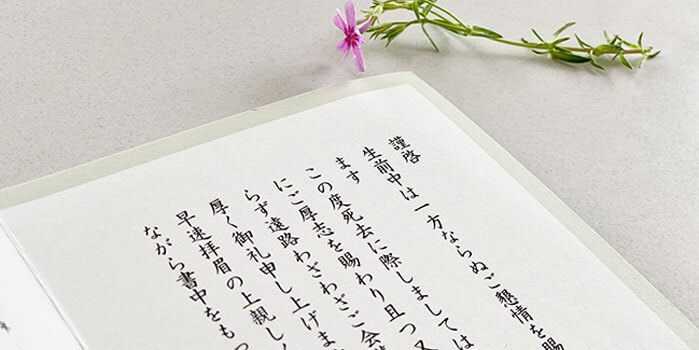 謹啓
生前中は一方ならぬご懇情を賜
ます
この度死去に際しましては
にご厚志を賜わり且つ又
らず遠路わざわざご会
厚く御礼申し上げま
早速拝眉の上親し
ながら書中をもつ